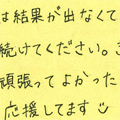 は結果が出なくて
続けてください。
頑張ってよかった
応援してます